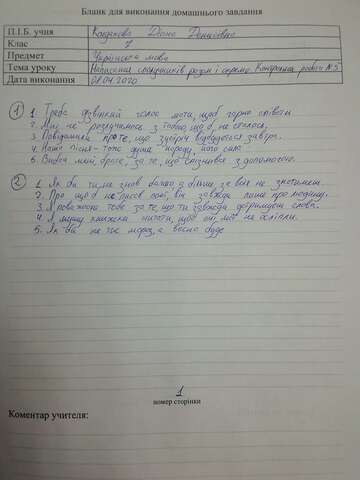 Бланк для виконання домашнього завдання
П.І.Б. учня Діана Денисівна
Клас 7
Предмет Українська мова
Тема уроку Написання сполучників разом і окремо. Контрольна робота №5
Дата виконання 08.04.2020
1 1. Треба дзвінкий голос мати, щоб гарно співати
2. Ми не розлучимось з тобою що б не сталося.
3. Повідомили про те, що зустріч відбудеться завтра.
4. Наша пісня - то є душа народу, його сила
5. Вибач мені, друже, за те, що спізнився з допомогою.
2 1. Як би ти не знав багато а більше за всіх не знатимеш.
2. Про що б не писав поет, він завжди пише про людину.
3. Я поважаю тебе за те, що ти завжди дотримуєш слова.
4. Я мушу книжки читати, щоб очі мої не осліпли.
5. Як би не час мороз, а весна буде
1
номер сторінки
Коментар учителя: